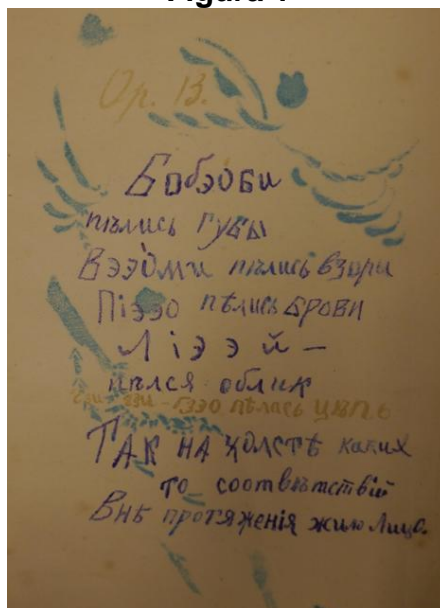 Figura 1
Ор. 13.
Бобэоби
пѣлись губы
Вээоми пѣлись взоры
Піээо пѣлись брови
Ліээй –
пѣлся облик
гзи-гзи-гзэо пѣлась цѣпь
Так на холстѣ каких
то соотвѣтствій
Внѣ протяженія жило Лицо.